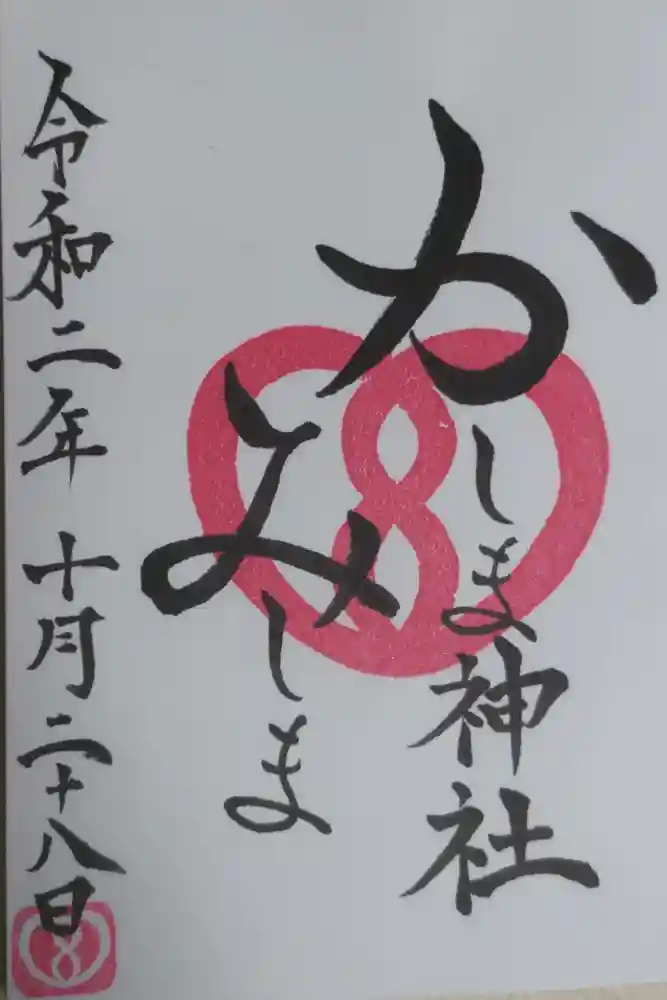 かしま神社
みしま
令和二年十月二十八日